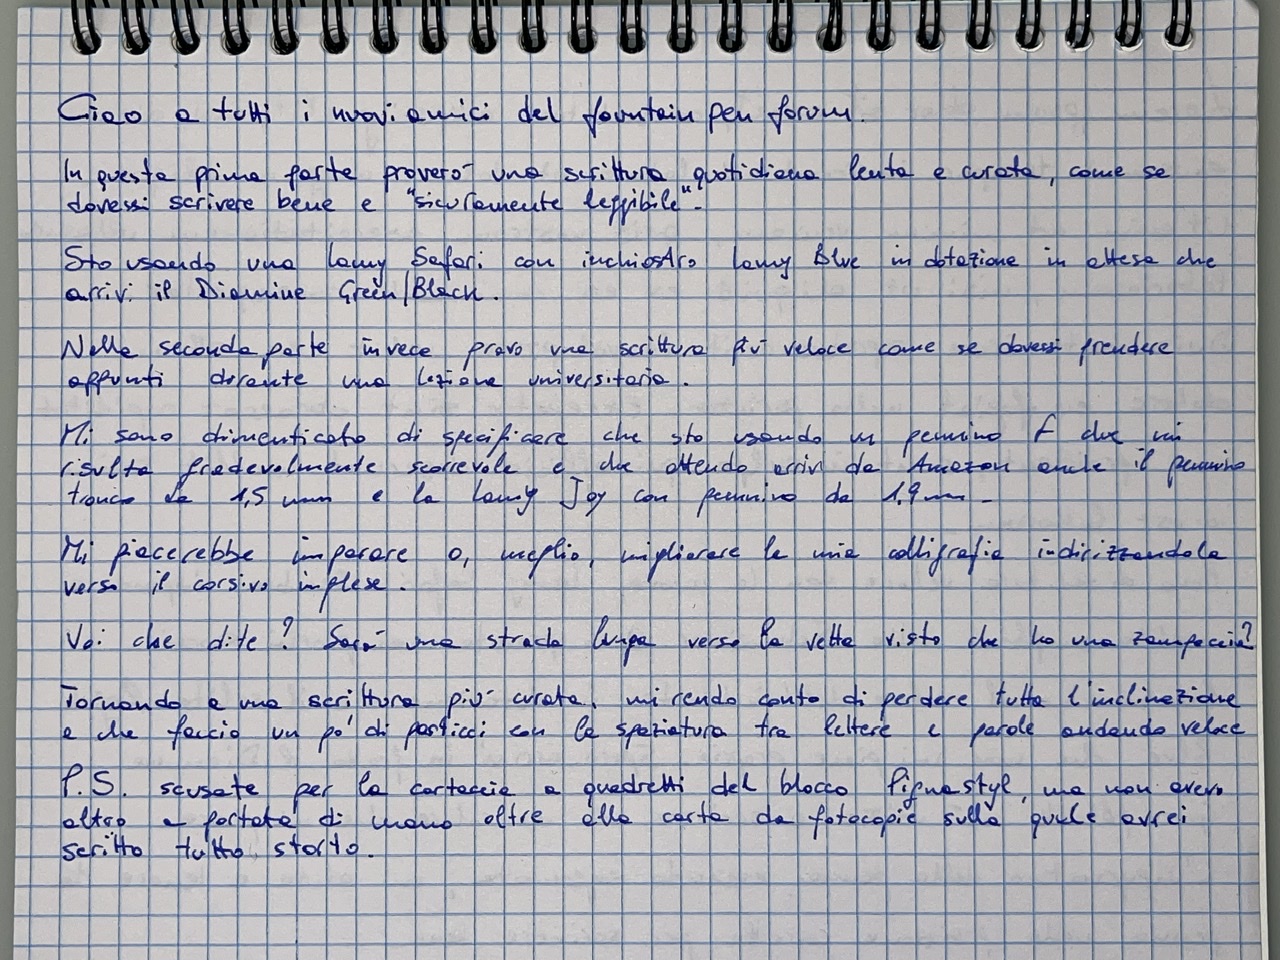 Ciao a tutti i nuovi amici del fountain pen forum.
In questa prima parte proverò una scrittura quotidiana lenta e curata, come se
dovessi scrivere bene e "sicuramente leggibile".
Sto usando una Lamy Safari con inchiostro Lamy Blue in dotazione in attesa che
arrivi il Diamine Green/Black.
Nella seconda parte invece provo una scrittura più veloce come se dovessi prendere
appunti durante una lezione universitaria.
Mi sono dimenticato di specificare che sto usando un pennino F che mi
risulta gradevolmente scorrevole e che attendo arrivi da Amazon anche il pennino
tronco da 1,5 mm e la Lamy Joy con pennino da 1,9 mm.
Mi piacerebbe imparare o, meglio, migliorare la mia calligrafia indirizzandola
verso il corsivo inglese.
Voi che dite? Sarà una strada lunga verso la vetta visto che ho una zampaccia?
Tornando a una scrittura più curata, mi rendo conto di perdere tutta l'inclinazione
e che faccio un pò di pasticci con la spaziatura tra lettere e parole andando veloce
P.S. scusate per la cartaccia a quadretti del blocco Pignastyl, ma non avevo
altro a portata di mano oltre alla carta da fotocopie sulla quale avrei
scritto tutto storto.